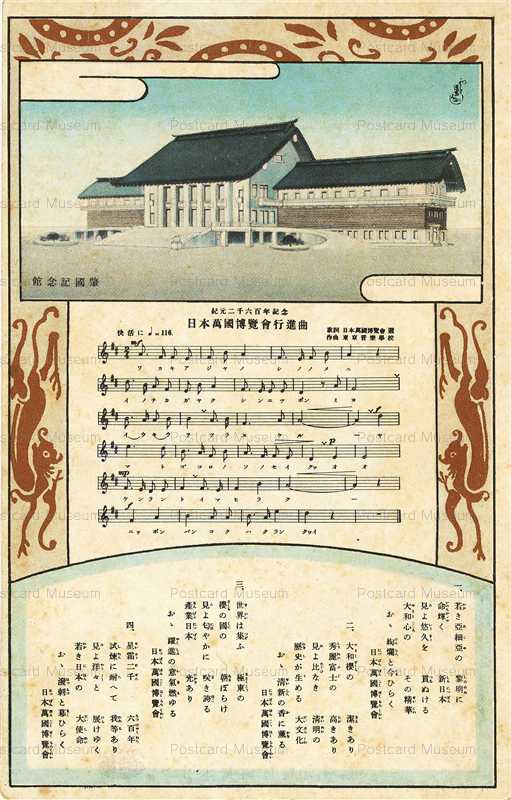 館念記國肇
紀元二千六百年記念
日本萬國博覽會行進曲
快活に ♩=116.
歌詞 日本萬國博覽會 選
作曲 東京音樂學校
mf
ワカキアジヤノ シノノメニ
イノチカガヤク シンニッポン ミヨ
f
p
mp
ケンラントイマヒラク
f
ニッポン バンコク ハクラン クヮイ
一、若き亞細亞の 黎明に
命輝く 新日本
見よ悠久を 貫ぬける
大和心の その精華
おゝ絢爛と今ひらく
日本萬國博覽會
二、大和櫻の 潔きあり
秀麗富士の 高きあり
見よ比なき 清明の
歷史が生める 大文化
おゝ清新の香に薰る
日本萬國博覽會
三、世界は集ふ 極東の
櫻の國の 朝ぼらけ
見よ匂やかに 咲き誇る
產業日本 光あり
おゝ躍進の意氣燃ゆる
日本萬國博覽會
四、星霜二千 六百年
試煉に耐へて 我等あり
見よ洋々と 展けゆく
若き日本の 大使命
おゝ潑剌と幕ひらく
日本萬國博覽會
Postcard Museum